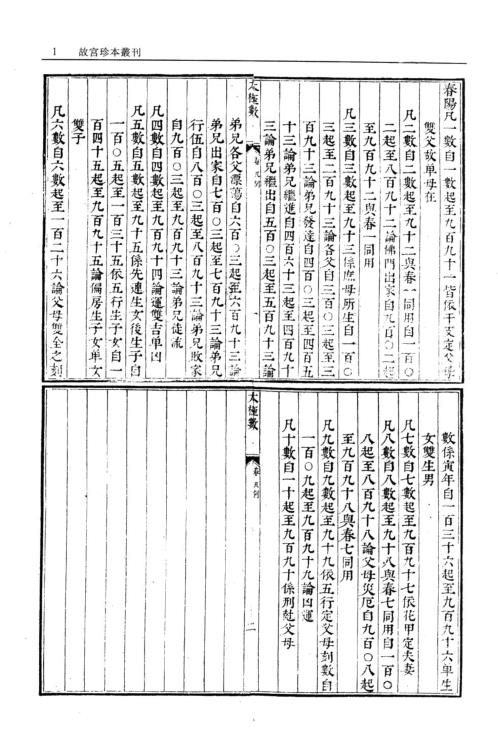 1 故宮珍本叢刊
春陽凡一數自一數起至九百九十一皆依干支定父母
雙父故單母在
凡二數自二數起至九十二與春一同用自一百〇
二起至八百九十二論佛門出家自九百〇二起
至九百九十二與春一同用
凡三數自三數起至九十三係庶母所生自一百〇
三起至二百九十三論各父自三百〇三起至三
百九十三論弟兄發達自四百〇三起至四百五
十三論弟兄繼進自四百六十三起至四百九十
三論弟兄繼出自五百〇三起至五百九十三論
太極數
春凡例
弟兄各父漂蕩自六百〇三起至六百九十三論
弟兄出家自七百〇三起至七百九十三論弟兄
行伍自八百〇三起至八百九十三論弟兄敗家
自九百〇三起至九百九十三論弟兄徒流
凡四數自四數起至九百九十四論運雙吉單凶
凡五數自五數起至九十五係先連生女後生子自
一百〇五起至一百三十五依五行生子女自一
百四十五起至九百九十五論偏房生子女單女
雙子
凡六數自六數起至一百二十六論父母雙全之刻
數係寅年自一百三十六起至九百九十六單生
女雙生男
凡七數自七數起至九百九十七依花甲定夫妻
凡八數自八數起至九十八與春七同用自一百〇
八起至八百九十八論父母災厄自九百〇八起
至九百九十八與春七同用
凡九數自九數起至九十九依五行定父母刻數自
一百〇九起至九百九十九論凶運
凡十數自一十起至九百九十係刑尅父母
太極數
春凡例
二